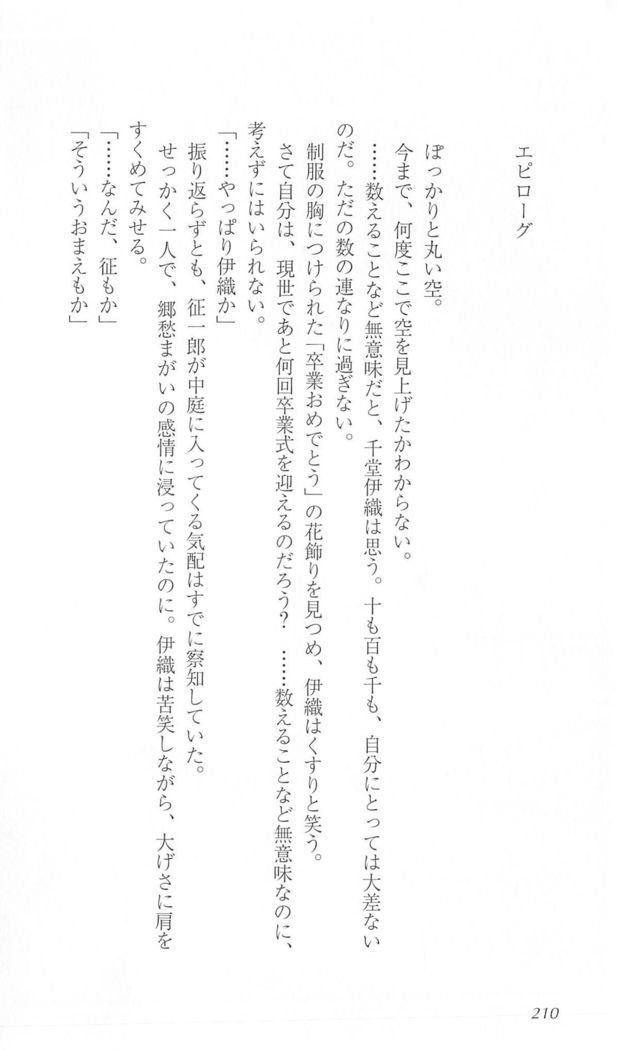 エピローグ
ぽっかりと丸い空。
今まで、何度ここで空を見上げたかわからない。
……数えることなど無意味だと、千堂伊織は思う。十も百も千も、自分にとっては大差ない
のだ。ただの数の連なりに過ぎない。
制服の胸につけられた「卒業おめでとう」の花飾りを見つめ、伊織はくすりと笑う。
さて自分は、現世であと何回卒業式を迎えるのだろう？　……数えることなど無意味なのに、
考えずにはいられない。
「……やっぱり伊織か」
振り返らずとも、征一郎が中庭に入ってくる気配はすでに察知していた。
せっかく一人で、郷愁まがいの感情に浸っていたのに。伊織は苦笑しながら、大げさに肩を
すくめてみせる。
「……なんだ、征もか」
「そういうおまえもか」
210